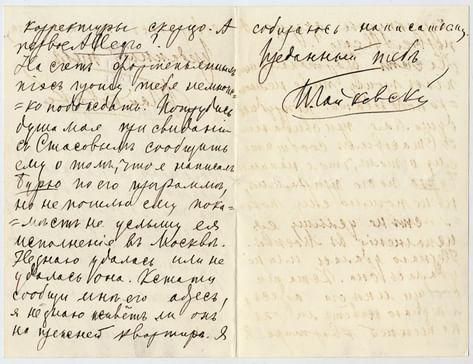 корректуры скерцо. А
первое Allegro?
На счетъ фортепьянныхъ
пiэсъ прошу тебя немнож=
=ко подождать. Потрудись
душа моя при свиданiи
съ Стасовымъ сообщить
ему о томъ, что я написалъ
Бурю по его программѣ,
но не пошлю ему пока=
=мѣстъ не услышу ея
исполненiя въ Москвѣ.
Не знаю удалась или не
удалась она. Кстати
сообщи мнѣ его адресъ,
я не знаю живетъ ли онъ
на прежней квартирѣ. Я
собираюсь написать ему
Преданный тебѣ
П Чайковскiй